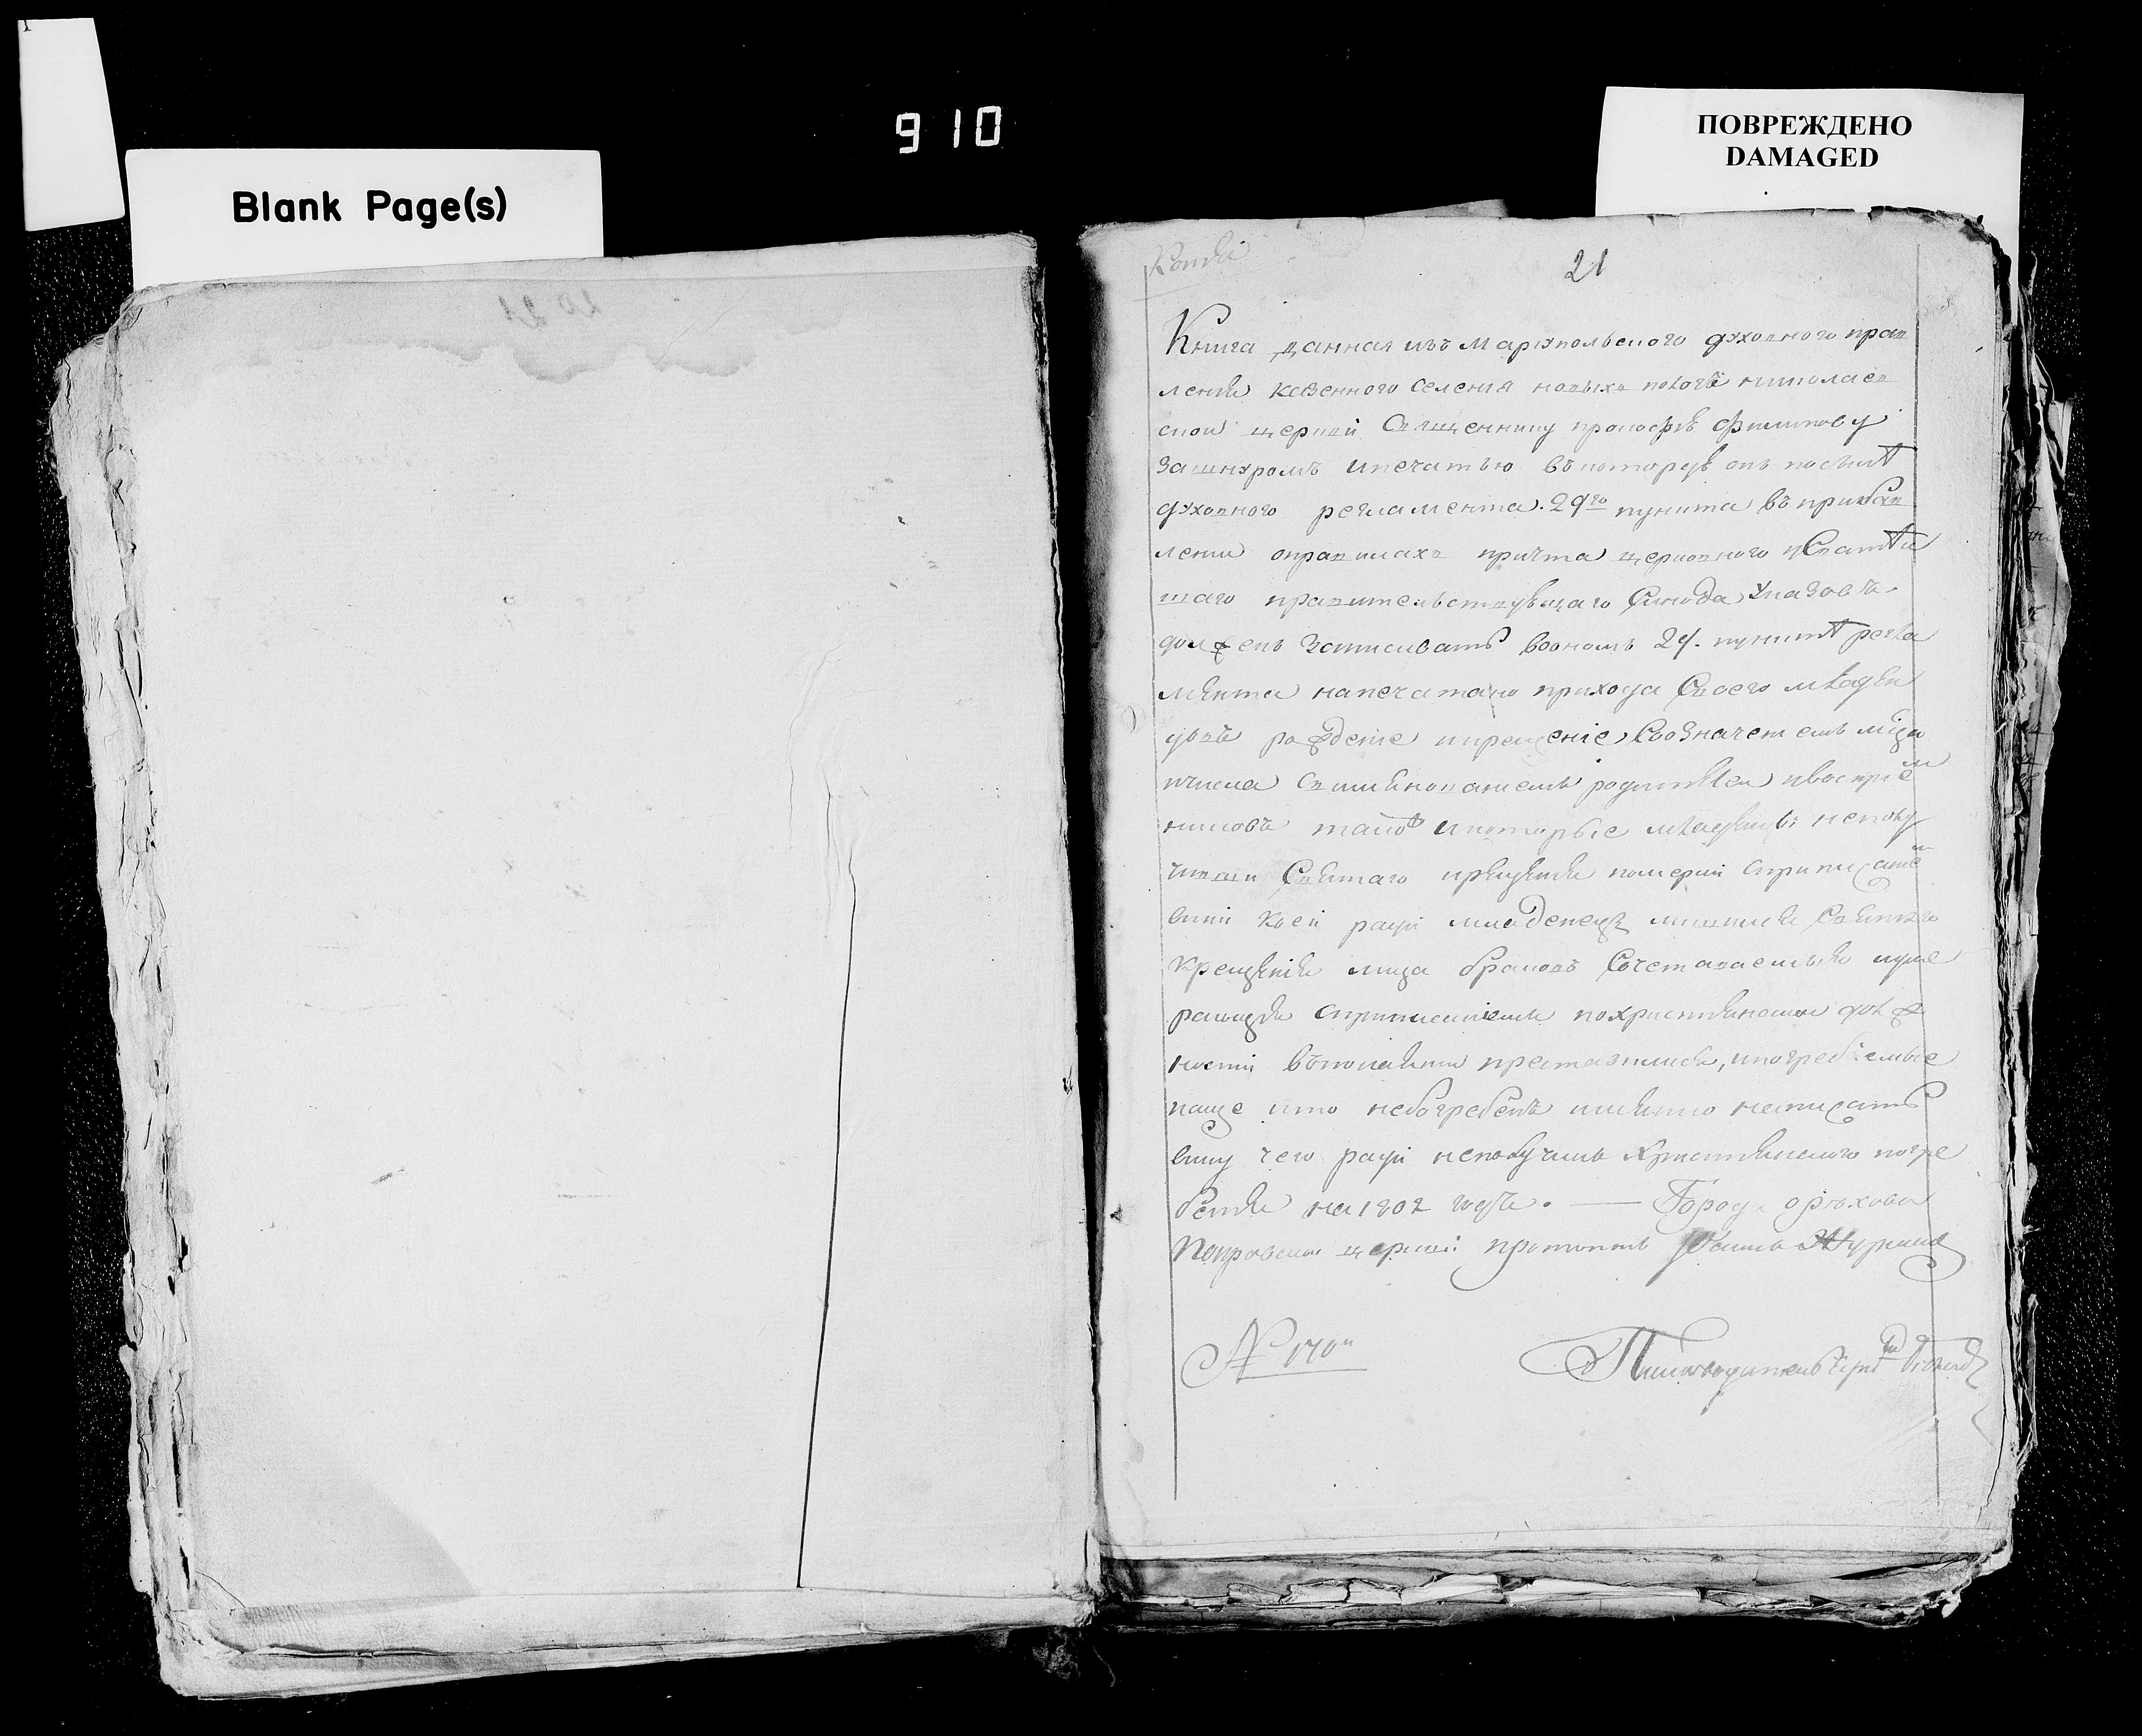 910
Blank Page(s)
ПОВРЕЖДЕНО
DAMAGED
Копия
21
Книга данная изъ Мариупольского духовного прав
ления казенного селения новыхъ николаев
ской церкви Священнику прокофию Филипову
зашнуромъ ипечатью вкоторую онъ посилѣ
духовного регламента. 29го пункта въ прибав
лении оправилахъ причта церковного иСвятѣй
шаго правительствующаго Синода Указовъ
должень записывать воономъ 29. пунктѣ регла
мента напечатано прихода Своего младен
цовъ рождение икрещение Соозначениемъ мсца
ичисла Сыименованиемъ родителей ивосприем
никовъ такожъ икоторые младенцы неполу
чивши Святаго крещения померли Сприписание
вини коей ради младенецъ лишился Святаго
Крещения лица бракомъ Сочетаваемыя
похристиянской долж
ности преставились, ипогребаемые
паще кто небогребенъ имянно написать
вину чего ради неполучилъ Християнского погре
бения на 1802 годъ. — Города орехова
Покровской церкви протопопъ Жур
№ 170й